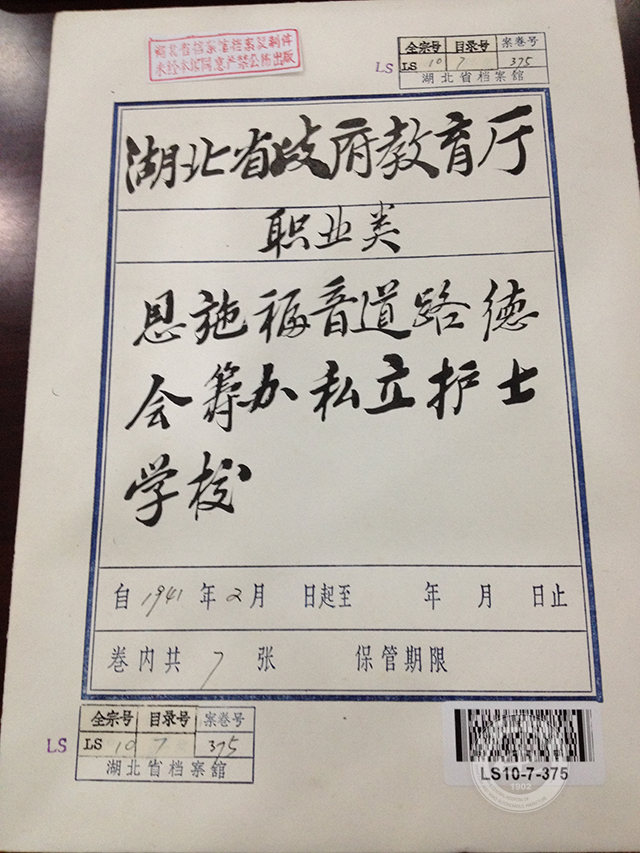 湖北省档案馆档案复制件
未经本馆同意严禁公布出版
全宗号 目录号 案卷号
LS LS 10 7 375
湖北省档案館
湖北省政府教育厅
职业类
恩施福音道路德
会筹办私立护士
学校
自1941年2月 日起至 年 月 日止
卷内共7张 保管期限
全宗号 目录号 案卷号
LS LS 10 7 375
湖北省档案館
LS10-7-375
1902